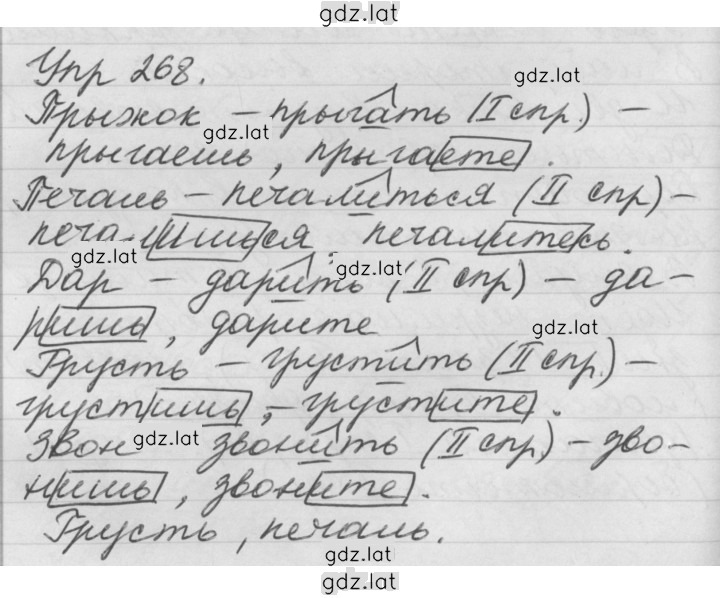 gdz.lat
Упр 268.
gdz.lat
Прыжок - прыгать (I спр.) -
gdz.lat
прыгаешь, прыгаете.
Печаль - печалиться (II спр) -
печалишься, печалитесь.
gdz.lat
gdz.lat
Дар - дарить (II спр) - да-
ришь, дарите
gdz.lat
Грусть - грустить (II спр.) -
грустишь, - грустите.
gdz.lat
Звон звонить (II спр.) - зво-
нишь, звоните.
Грусть, печаль.
gdz.lat
gdz.lat